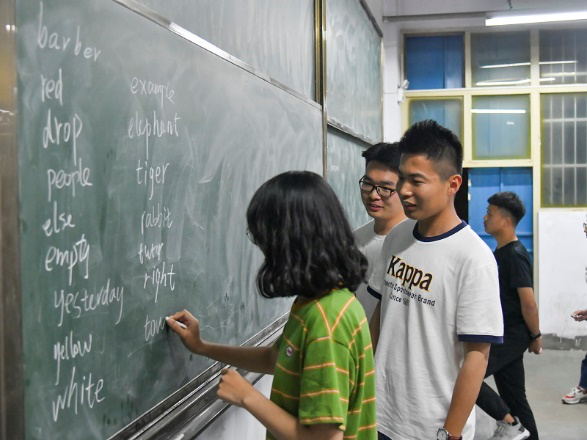 barber
red
drop
people
else
empty
yesterday
yellow
white
example
elephant
tiger
rabbit
right
Kappa
Since